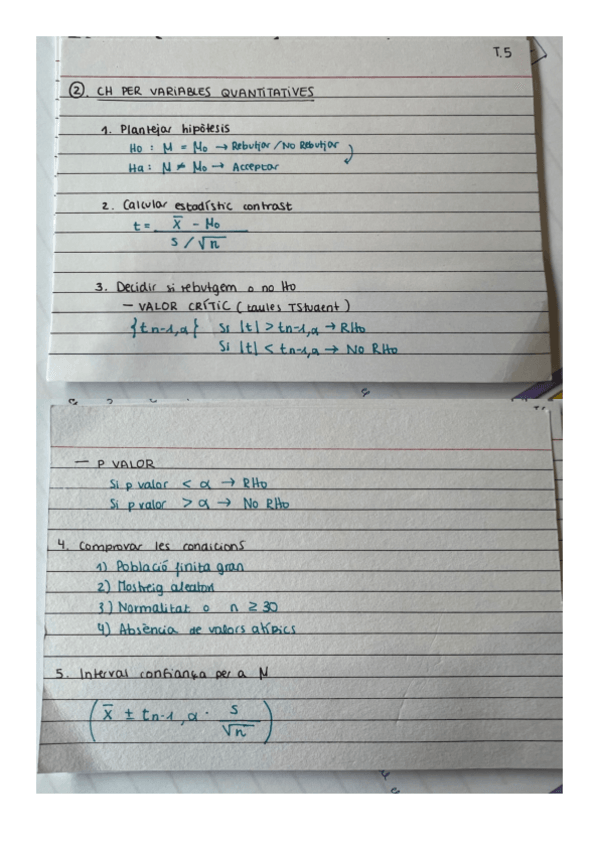 T.5
②. CH PER VARIABLES QUANTITATIVES
1. Plantejar hipòtesis
Ho : M = Mo → Rebutjar / No Rebutjar
Ha : M ≠ Mo → Acceptar
2. Calcular estadístic contrast
t = x̄ - Mo / s / √n
3. Decidir si rebutgem o no Ho
— VALOR CRÍTIC ( taules TStudent )
{tn-1,α} Si |t| > tn-1,α → RHo
Si |t| < tn-1,α → No RHo
— P VALOR
Si p valor < α → RHo
Si p valor > α → No RHo
4. Comprovar les condicions
1) Població finita gran
2) Mostreig aleatori
3) Normalitat o n ≥ 30
4) Absència de valors atípics
5. Interval confiança per a M
( x̄ ± tn-1, α · s / √n )